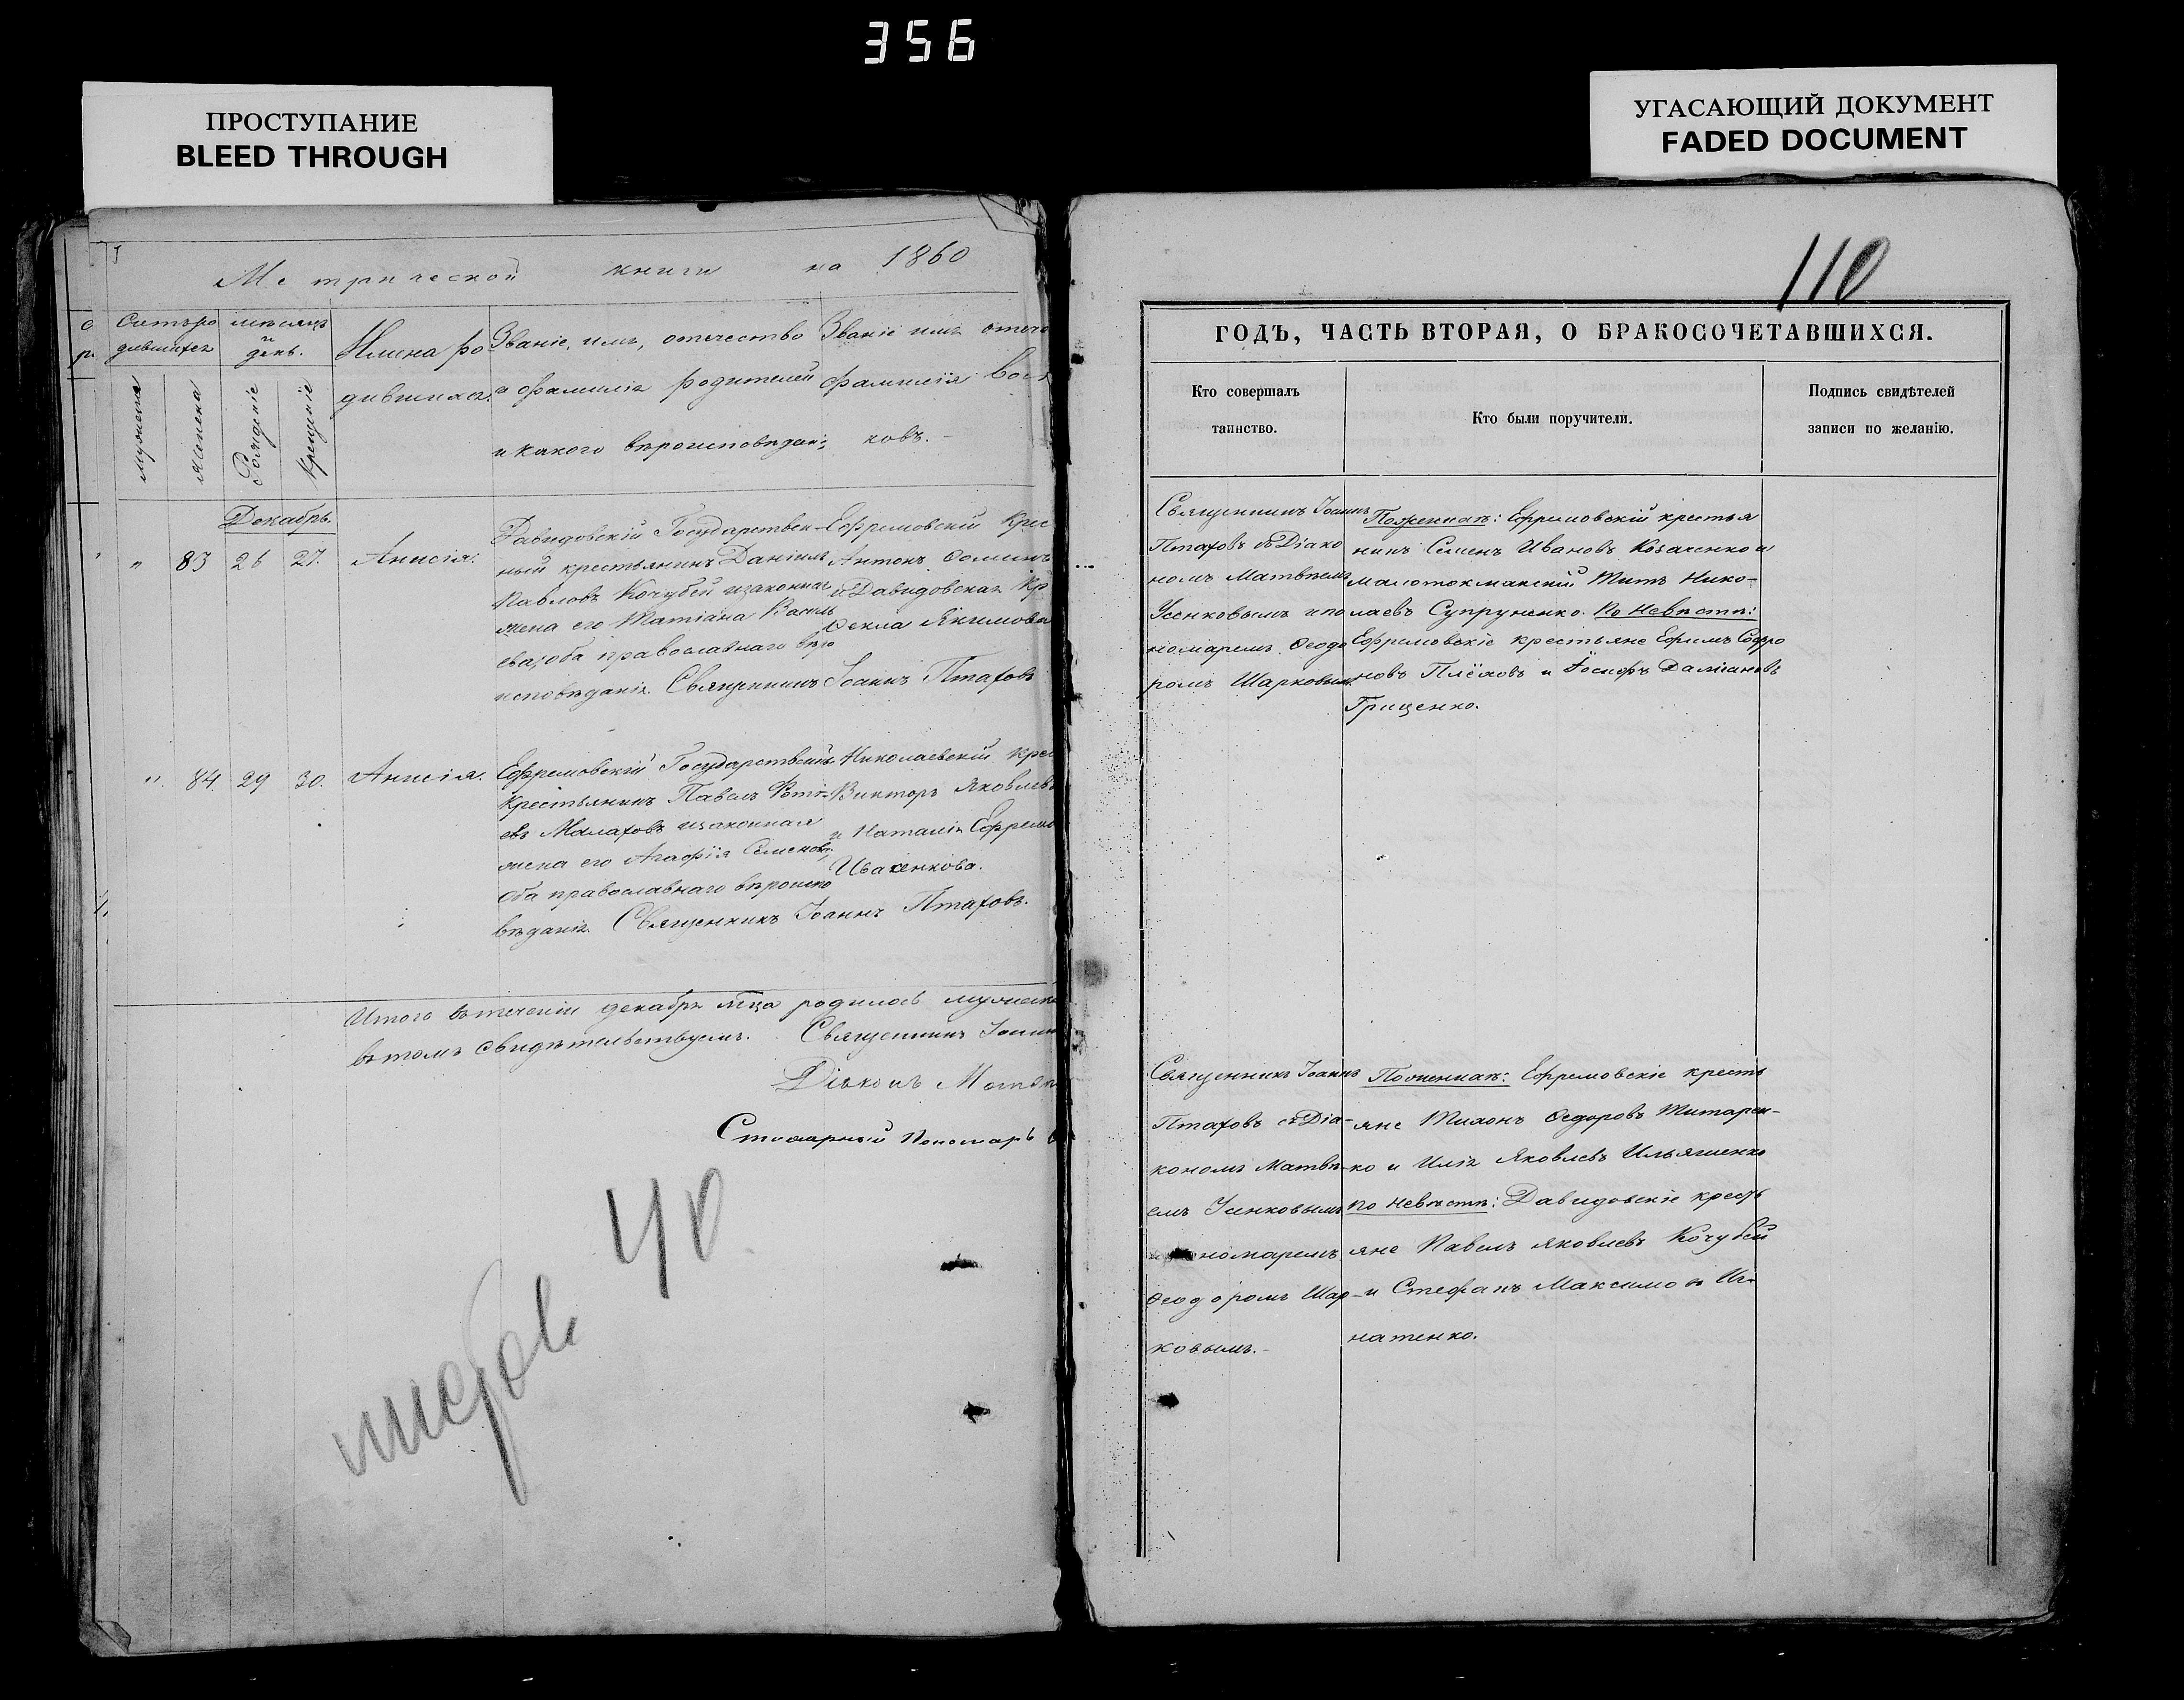 356
ПРОСТУПАНИЕ
BLEED THROUGH
УГАСАЮЩИЙ ДОКУМЕНТ
FADED DOCUMENT
Метрической книги на 1860
Счетъ ро
дившихся
мѣсяцъ
и
день.
мужеска
женска
Рожденіе
Крещеніе
Имена ро
дившихся.
Званіе, имя, отечество
и фамилія родителей
и какого вѣроисповѣдан:
Званіе имя отече
фамилія Вос
ковъ.
Декабрь.
" 83 26 27. Анисія.
Давидовскій Государствен-
ный крестьянинъ Даніилъ
Павловъ Кочубей изаконная
жена его Татіана Василь
ева, оба православнаго вѣро
исповѣданія. Священникъ Іоаннъ Птаховъ
Ефремовскій Крес
Антонъ
и Давидовская Кр
Ѳекла Якимова
". 84. 29 30. Анисія.
Ефремовскій Государствен:
Крестьянинъ Павелъ Фоті-
евъ Малаховъ изаконная
жена его Агафія Семенов:
Оба православнаго вѣроиспо
вѣданія. Священникъ Іоаннъ Птаховъ.
Николаевскій Крес
Викторъ Яковлевъ
и Наталія Ефремо
Ивахенкова.
Итого втеченіи декабря мѣца родилось мужеска
въ томъ свидѣтельствуемъ. Священникъ Іоанн
Діаконъ Матвѣ
Стихарный Пономарь
40
110
ГОДЪ, ЧАСТЬ ВТОРАЯ, О БРАКОСОЧЕТАВШИХСЯ.
Кто совершалъ
таинство.
Кто были поручители.
Подпись свидѣтелей
записи по желанію.
Священникъ Іоаннъ
Птаховъ съ Діако
номъ Матвѣемъ
Усенковымъ и по
номаремъ Ѳеодо
ромъ Шарковымъ.
По женихѣ: Ефремовскій крестья
нинъ Семенъ Ивановъ Козаченко и
малотокмакскій Титъ Нико-
лаевъ Супруненко. По Невѣстѣ:
Ефремовскіе крестьяне Ефимъ Софро
новъ Плёховъ и Іосифъ Даміановъ
Гриценко.
Священникъ Іоаннъ
Птаховъ съ Діа-
кономъ Матвѣ-
емъ Усенковымъ
номаремъ
Ѳеодоромъ Шар-
ковымъ.-
По женихѣ: Ефремовскіе кресть
яне Тихонъ Ѳедоровъ Титарен-
ко и Илія Яковлевъ Ильяшенко
по Невѣстѣ: Давидовскіе кресть
яне Павелъ Яковлевъ Кочубей
и Стефанъ Максимовъ Иг-
натенко.